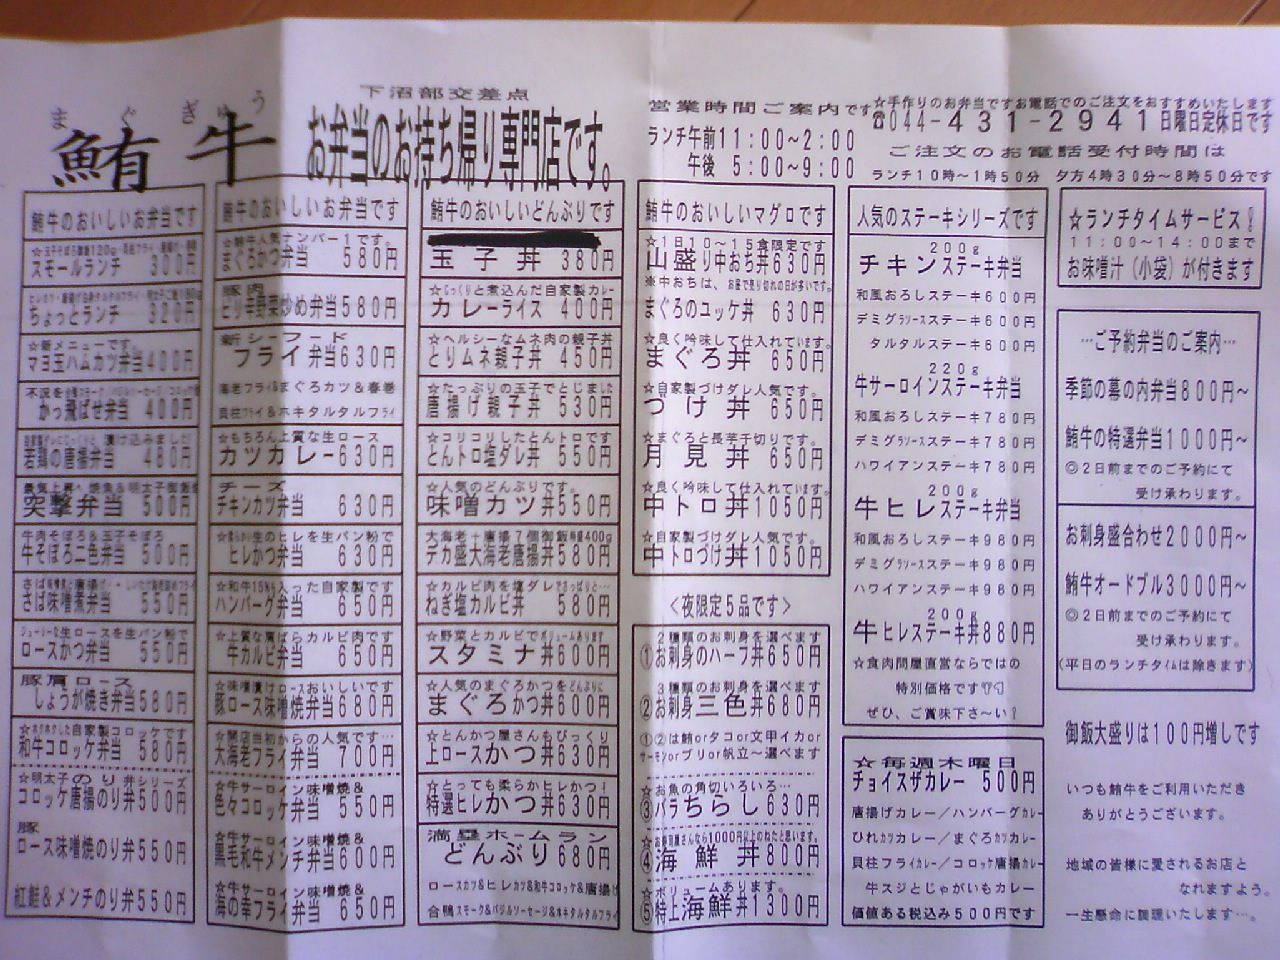 下沼部交差点
まぐぎゅう
鮪牛
お弁当のお持ち帰り専門店です。
営業時間ご案内です
ランチ午前11:00~2:00
午後 5:00~9:00
☆手作りのお弁当ですお電話でのご注文をおすすめいたします
☎044-431-2941日曜日定休日です
ご注文のお電話受付時間は
ランチ10時~1時50分 夕方4時30分~8時50分です
鮪牛のおいしいお弁当です
スモールランチ 300円
ちょっとランチ 320円
☆新メニューです。
マヨ玉ハムカツ弁当400円
かっ飛ばせ弁当 400円
若鶏の唐揚弁当 480円
突撃弁当 500円
牛肉そぼろ&玉子そぼろ
牛そぼろ二色弁当 500円
さば味噌煮弁当 550円
ジューシーな生ロースを生パン粉で
ロースかつ弁当 550円
豚肩ロース
しょうが焼き弁当580円
☆ホクホクした自家製コロッケです
和牛コロッケ弁当 580円
☆明太子のり弁シリーズ
コロッケ唐揚のり弁500円
豚
ロース味噌焼のり弁550円
紅鮭&メンチのり弁550円
鮪牛のおいしいお弁当です
☆鮪牛人気ナンバー1です。
まぐろかつ弁当 580円
豚肉
ピリ辛野菜炒め弁当580円
新シーフード
フライ弁当630円
海老フライ&まぐろカツ&春巻
貝柱フライ&ホキタルタルフライ
☆もちろん上質な生ロース
カツカレー630円
チーズ
チキンカツ弁当 630円
☆柔らかい生のヒレを生パン粉で
ヒレかつ弁当 630円
☆和牛15%入った自家製です
ハンバーグ弁当 650円
☆上質な肩ばらカルビ肉です
牛カルビ弁当 650円
☆味噌漬けロースおいしいです
豚ロース味噌焼弁当680円
☆開店当初からの人気です…
大海老フライ弁当 700円
☆牛サーロイン味噌焼&
色々コロッケ弁当 550円
☆牛サーロイン味噌焼&
黒毛和牛メンチ弁当600円
☆牛サーロイン味噌焼&
海の幸フライ弁当 650円
鮪牛のおいしいどんぶりです
玉子丼 380円
☆じっくりと煮込んだ自家製カレー
カレーライス 400円
☆ヘルシーなムネ肉の親子丼
とりムネ親子丼 450円
☆たっぷりの玉子でとじました
唐揚げ親子丼 530円
☆コリコリしたとんトロです
とんトロ塩ダレ丼 550円
☆人気のどんぶりです。
味噌カツ丼550円
大海老+唐揚7個御飯400g
デカ盛大海老唐揚丼580円
☆カルビ肉を塩ダレでさっぱりと…
ねぎ塩カルビ丼 580円
☆野菜とカルビでボリュームあります
スタミナ丼600円
☆人気のまぐろかつをどんぶりに
まぐろかつ丼600円
☆とんかつ屋さんもびっくり
上ロースかつ丼630円
☆とっても柔らかヒレかつ!
特選ヒレかつ丼630円
満塁ホームラン
どんぶり680円
ロースカツ&ヒレカツ&和牛コロッケ&唐揚げ
合鴨スモーク&バジルソーセージ&ホキタルタルフライ
鮪牛のおいしいマグロです
☆1日10~15食限定です
山盛り中おち丼630円
※中おちは、お昼で売り切れの日が多いです。
まぐろのユッケ丼 630円
☆良く吟味して仕入れています。
まぐろ丼 650円
☆自家製づけダレ人気です。
づけ丼 650円
☆まぐろと長芋千切りです。
月見丼 650円
☆良く吟味して仕入れています。
中トロ丼 1050円
☆自家製づけダレ人気です。
中トロづけ丼1050円
<夜限定5品です>
2種類のお刺身を選べます
①お刺身のハーフ丼650円
3種類のお刺身を選べます
②お刺身三色丼 680円
①②は鮪orタコor文甲イカor
サーモンorブリor帆立~選べます
☆お魚の角切りいろいろ…
③バラちらし630円
☆お寿司屋さんなら1000円以上のねたと思います。
④海鮮丼800円
☆ボリュームあります。
⑤特上海鮮丼1300円
人気のステーキシリーズです
200g
チキンステーキ弁当
和風おろしステーキ600円
デミグラソースステーキ600円
タルタルステーキ 600円
220g
牛サーロインステーキ弁当
和風おろしステーキ780円
デミグラソースステーキ780円
ハワイアンステーキ780円
200g
牛ヒレステーキ弁当
和風おろしステーキ980円
デミグラソースステーキ980円
ハワイアンステーキ980円
200g
牛ヒレステーキ丼880円
☆食肉問屋直営ならではの
特別価格です
ぜひ、ご賞味下さ~い!
☆毎週木曜日
チョイスザカレー 500円
唐揚げカレー/ハンバーグカレー
ひれカツカレー/まぐろカツカレー
貝柱フライカレー/コロッケ唐揚カレー
牛スジとじゃがいもカレー
価値ある税込み500円です
☆ランチタイムサービス!
11:00~14:00まで
お味噌汁(小袋)が付きます
…ご予約弁当のご案内…
季節の幕の内弁当800円~
鮪牛の特選弁当1000円~
◎2日前までのご予約にて
受け承わります。
お刺身盛合わせ2000円~
鮪牛オードブル3000円~
◎2日前までのご予約にて
受け承わります。
(平日のランチタイムは除きます)
御飯大盛りは100円増しです
いつも鮪牛をご利用いただき
ありがとうございます。
地域の皆様に愛されるお店と
なれますよう。
一生懸命に調理いたします…。